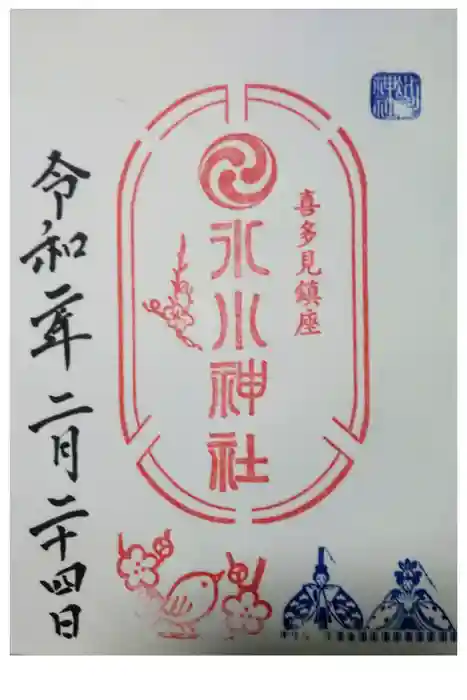 喜多見鎮座
氷川神社
令和二年 二月二十四日